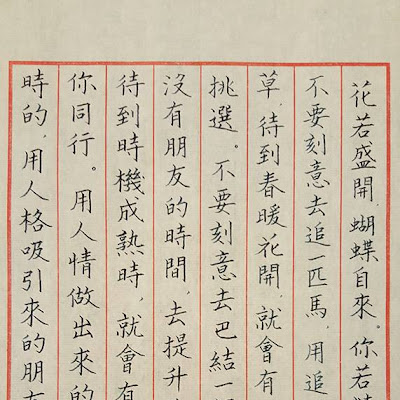 花若盛開，蝴蝶自來。你若
不要刻意去追一匹馬，用追
草，待到春暖花開，就會有
挑選。不要刻意去巴結一
沒有朋友的時間，去提升
待到時機成熟時，就會有
你同行。用人情做出來的
時的，用人格吸引來的朋友